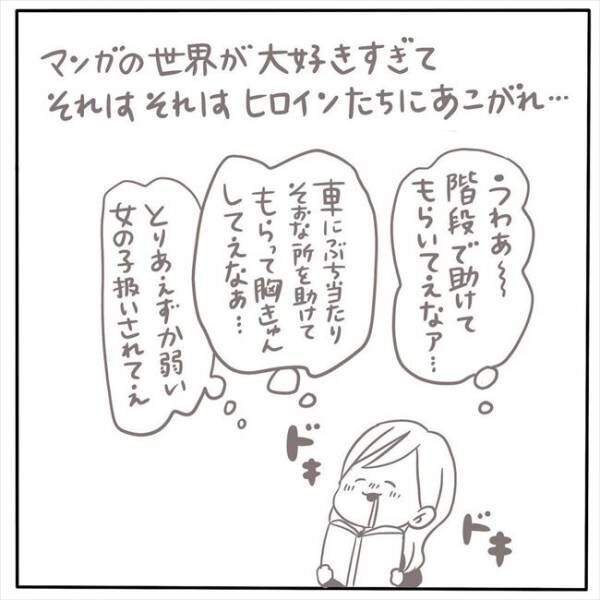 マンガの世界が大好きすぎて
それはそれはヒロインたちにあこがれ…
うわぁ〜
階段で助けて
もらいてえなァ…
車にぶち当たり
そおな所を助けて
もらって胸きゅん
してえなぁ…
とりあえずか弱い
女の子扱いされてえ
ドキ
ドキ